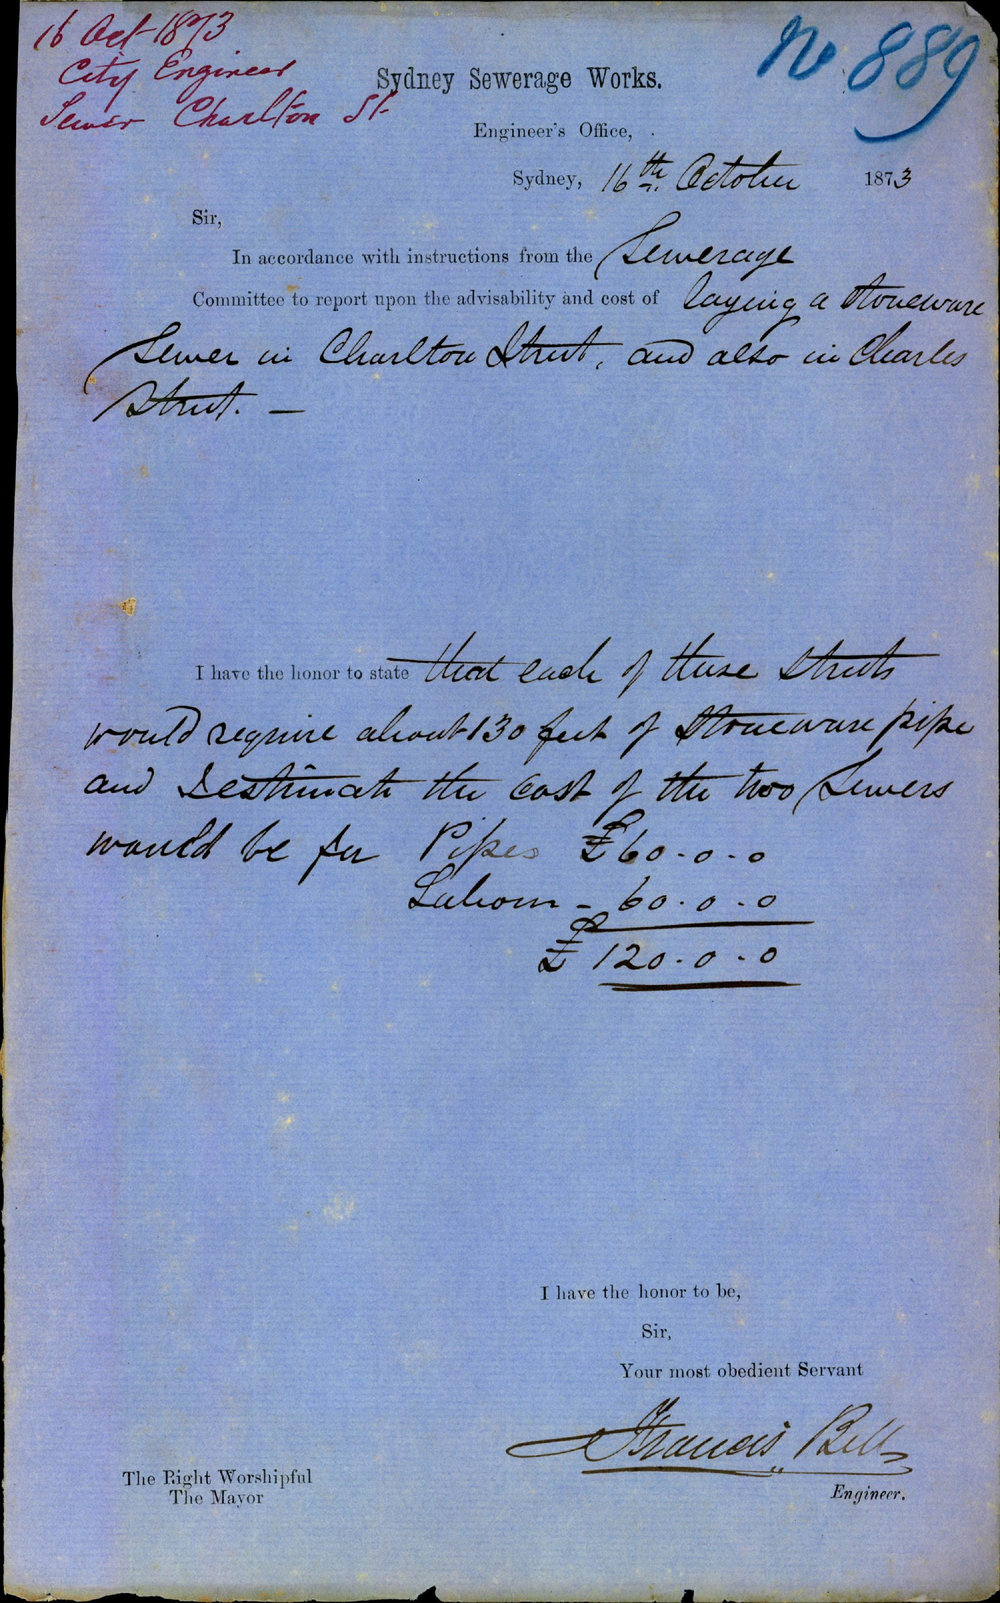 16 Oct 1873
City Engineer
Sewer Charlton St
No 889
Sydney Sewerage Works.
Engineer's Office,
Sydney, 16th October 1873
Sir,
In accordance with instructions from the Sewerage
Committee to report upon the advisability and cost of laying a stoneware
Sewer in Charlton Street, and also in Charles
Street. —
I have the honor to state that each of these Streets
would require about 130 feet of Stoneware pipe
and I estimate the cost of the two Sewers
would be for Pipes £60.0.0
Labour - 60.0.0
£120.0.0
I have the honor to be,
Sir,
Your most obedient Servant
Francis Bell
Engineer.
The Right Worshipful
The Mayor